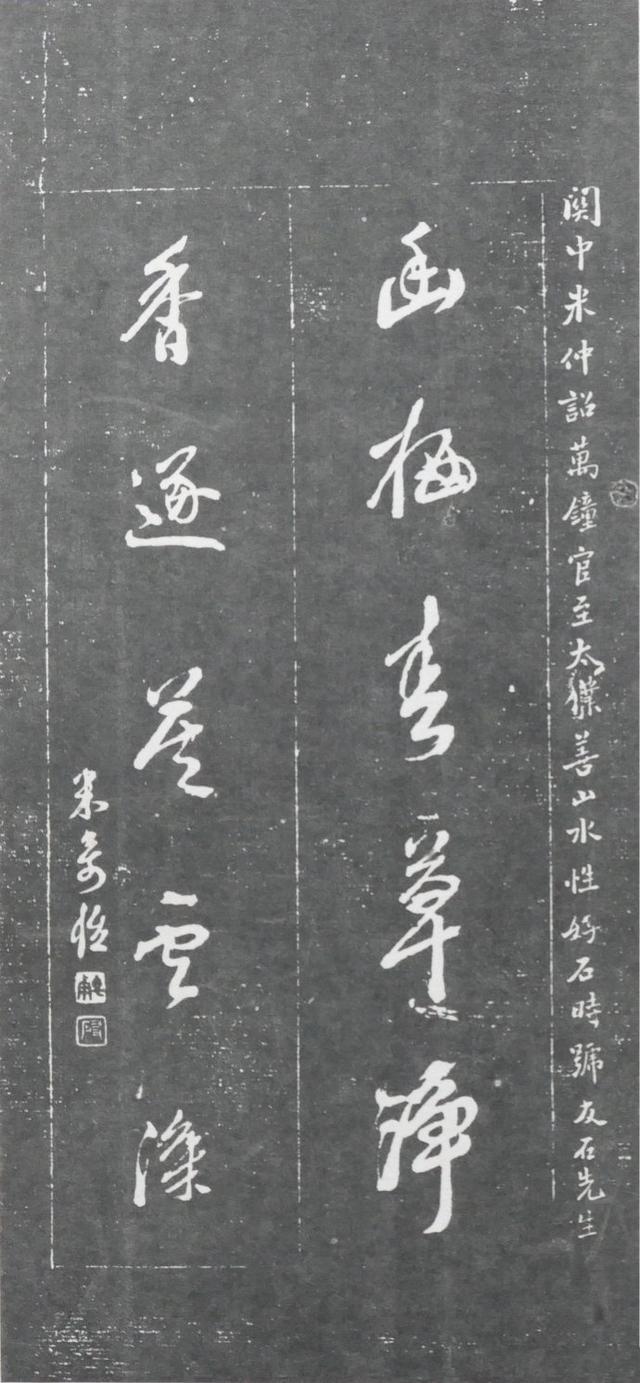 關中米仲詔萬鐘官至太僕善山水性好石時號友石先生
幽梅春草淨
香逐暮雲深
米萬鍾